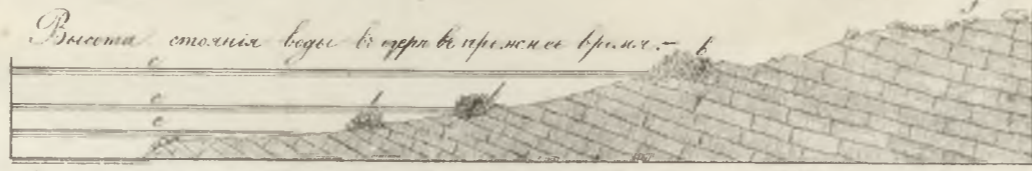 Высота стоянія воды въ озерѣ въ прежнее время.–
c
b
c
b
b
c